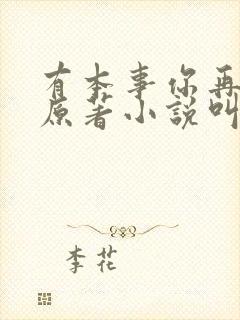 有本事你再
原著小說叫
李花